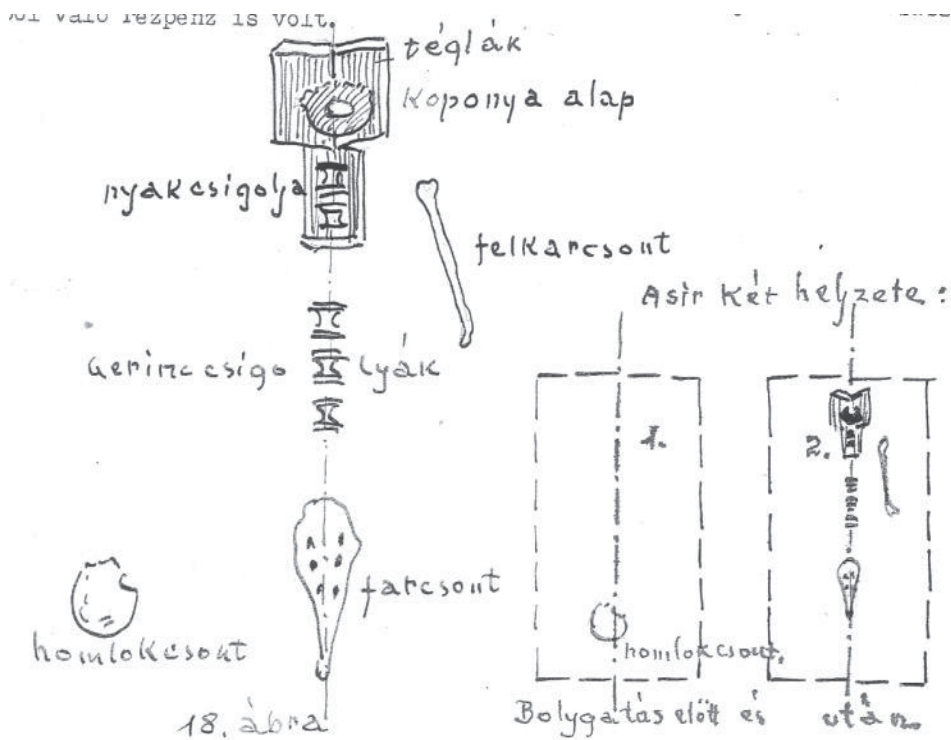 ból való rézpénz is volt.
téglák
Koponya alap
nyakcsigolya
felkarcsont
Gerinccsigo lyák
farcsont
homlokcsont
18. ábra
A sír két helyzete:
1.
2.
homlokcsont.
Bolygatás előtt és után